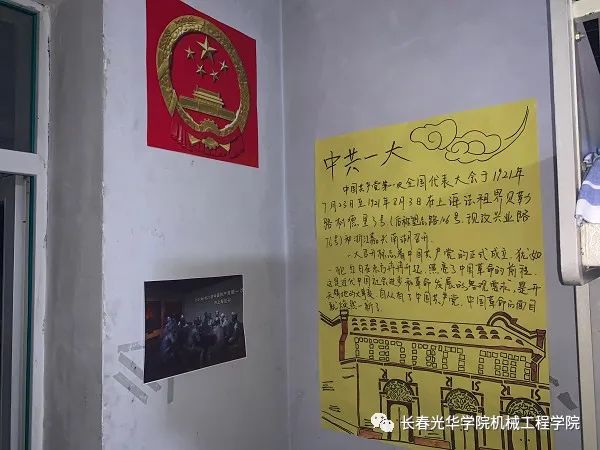 中共一大
中国共产党第一次全国代表大会于1921年
7月23日至1921年8月3日在上海法租界贝勒
路树德里3号(后称望志路106号,现改兴业路
76号)和浙江嘉兴南湖召开.
一大召开标志着中国共产党的正式成立,犹如
一轮红日在东方冉冉升起,照亮了中国革命的前程.
这是近代中国社会进步和革命发展的客观要求,是开
天辟地的大事变.自从有了中国共产党,中国革命的面目
就焕然一新了.
长春光华学院机械工程学院